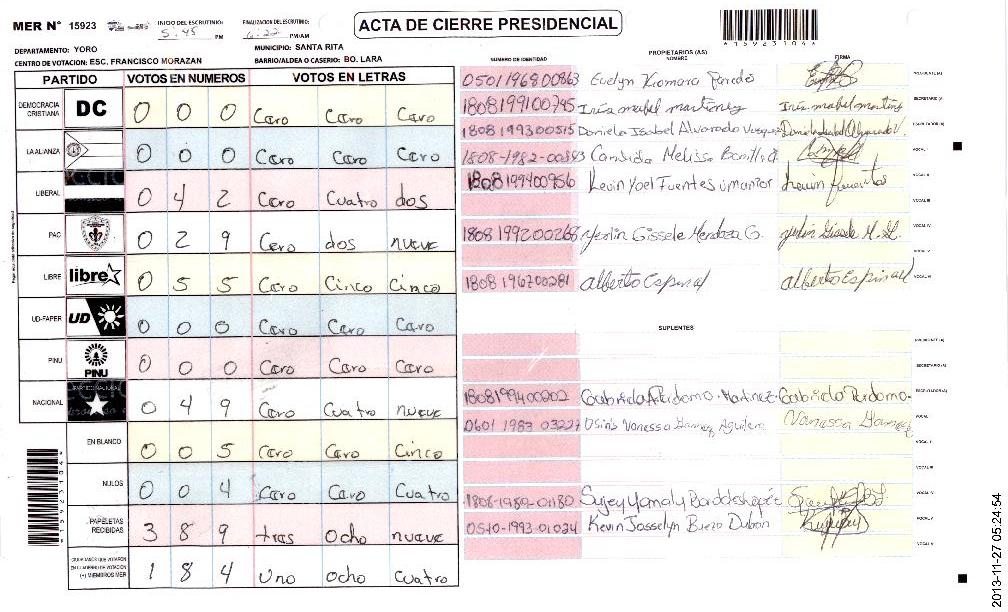 MER N° 15923 INICIO DEL ESCRUTINIO: 5:45 PM FINALIZACION DEL ESCRUTINIO: 6:22 PM/AM
ACTA DE CIERRE PRESIDENCIAL
DEPARTAMENTO: YORO MUNICIPIO: SANTA RITA
CENTRO DE VOTACION: ESC. FRANCISCO MORAZAN BARRIO/ALDEA O CASERIO: BO. LARA
PARTIDO VOTOS EN NUMEROS VOTOS EN LETRAS
DEMOCRACIA CRISTIANA DC 0 0 0 Cero Cero Cero
LA ALIANZA 0 0 0 Cero Cero Cero
LIBERAL 0 4 2 Cero Cuatro dos
PAC 0 2 9 Cero dos nueve
LIBRE libre 0 5 5 Cero Cinco Cinco
UD-FAPER UD 0 0 0 Cero Cero Cero
PINU PINU 0 0 0 Cero Cero Cero
NACIONAL 0 4 9 Cero Cuatro nueve
EN BLANCO 0 0 5 Cero Cero Cinco
NULOS 0 0 4 Cero Cero Cuatro
PAPELETAS RECIBIDAS 3 8 9 tres Ocho nueve
(+) MIEMBROS MER 1 8 4 Uno Ocho Cuatro
PROPIETARIOS (AS)
NUMERO DE IDENTIDAD NOMBRE FIRMA
Evelyn Xiomara PRESIDENTE (A)
1808199100795 Inés mabel martinez Inés mabel martinez SECRETARIO (A)
1808199300515 Daniela Isabel Alvarado ESCRUTADOR (A)
1808-1982-00383 Candida Melissa Bonilla VOCAL I
1808199400956 Kevin Yoel Fuentes umanzor VOCAL II
VOCAL III
1808199200268 Yerlin Gissele Mendoza G. Yerlin Gissele M. VOCAL IV
VOCAL V
1808196700281 Alberto Espinal Alberto Espinal VOCAL VI
SUPLENTES
PRESIDENTE (A)
SECRETARIO (A)
1808199400202 Gabriela Perdomo Martinez Gabriela Perdomo ESCRUTADOR (A)
0601 1987 03227 Vanessa Aguilera Vanessa VOCAL I
VOCAL II
VOCAL III
1808-1980-01180 Sujey Yamaly VOCAL IV
0510-1993-01034 Kevin Josselyn Duban VOCAL V
VOCAL VI
2013-11-27 05:24:54